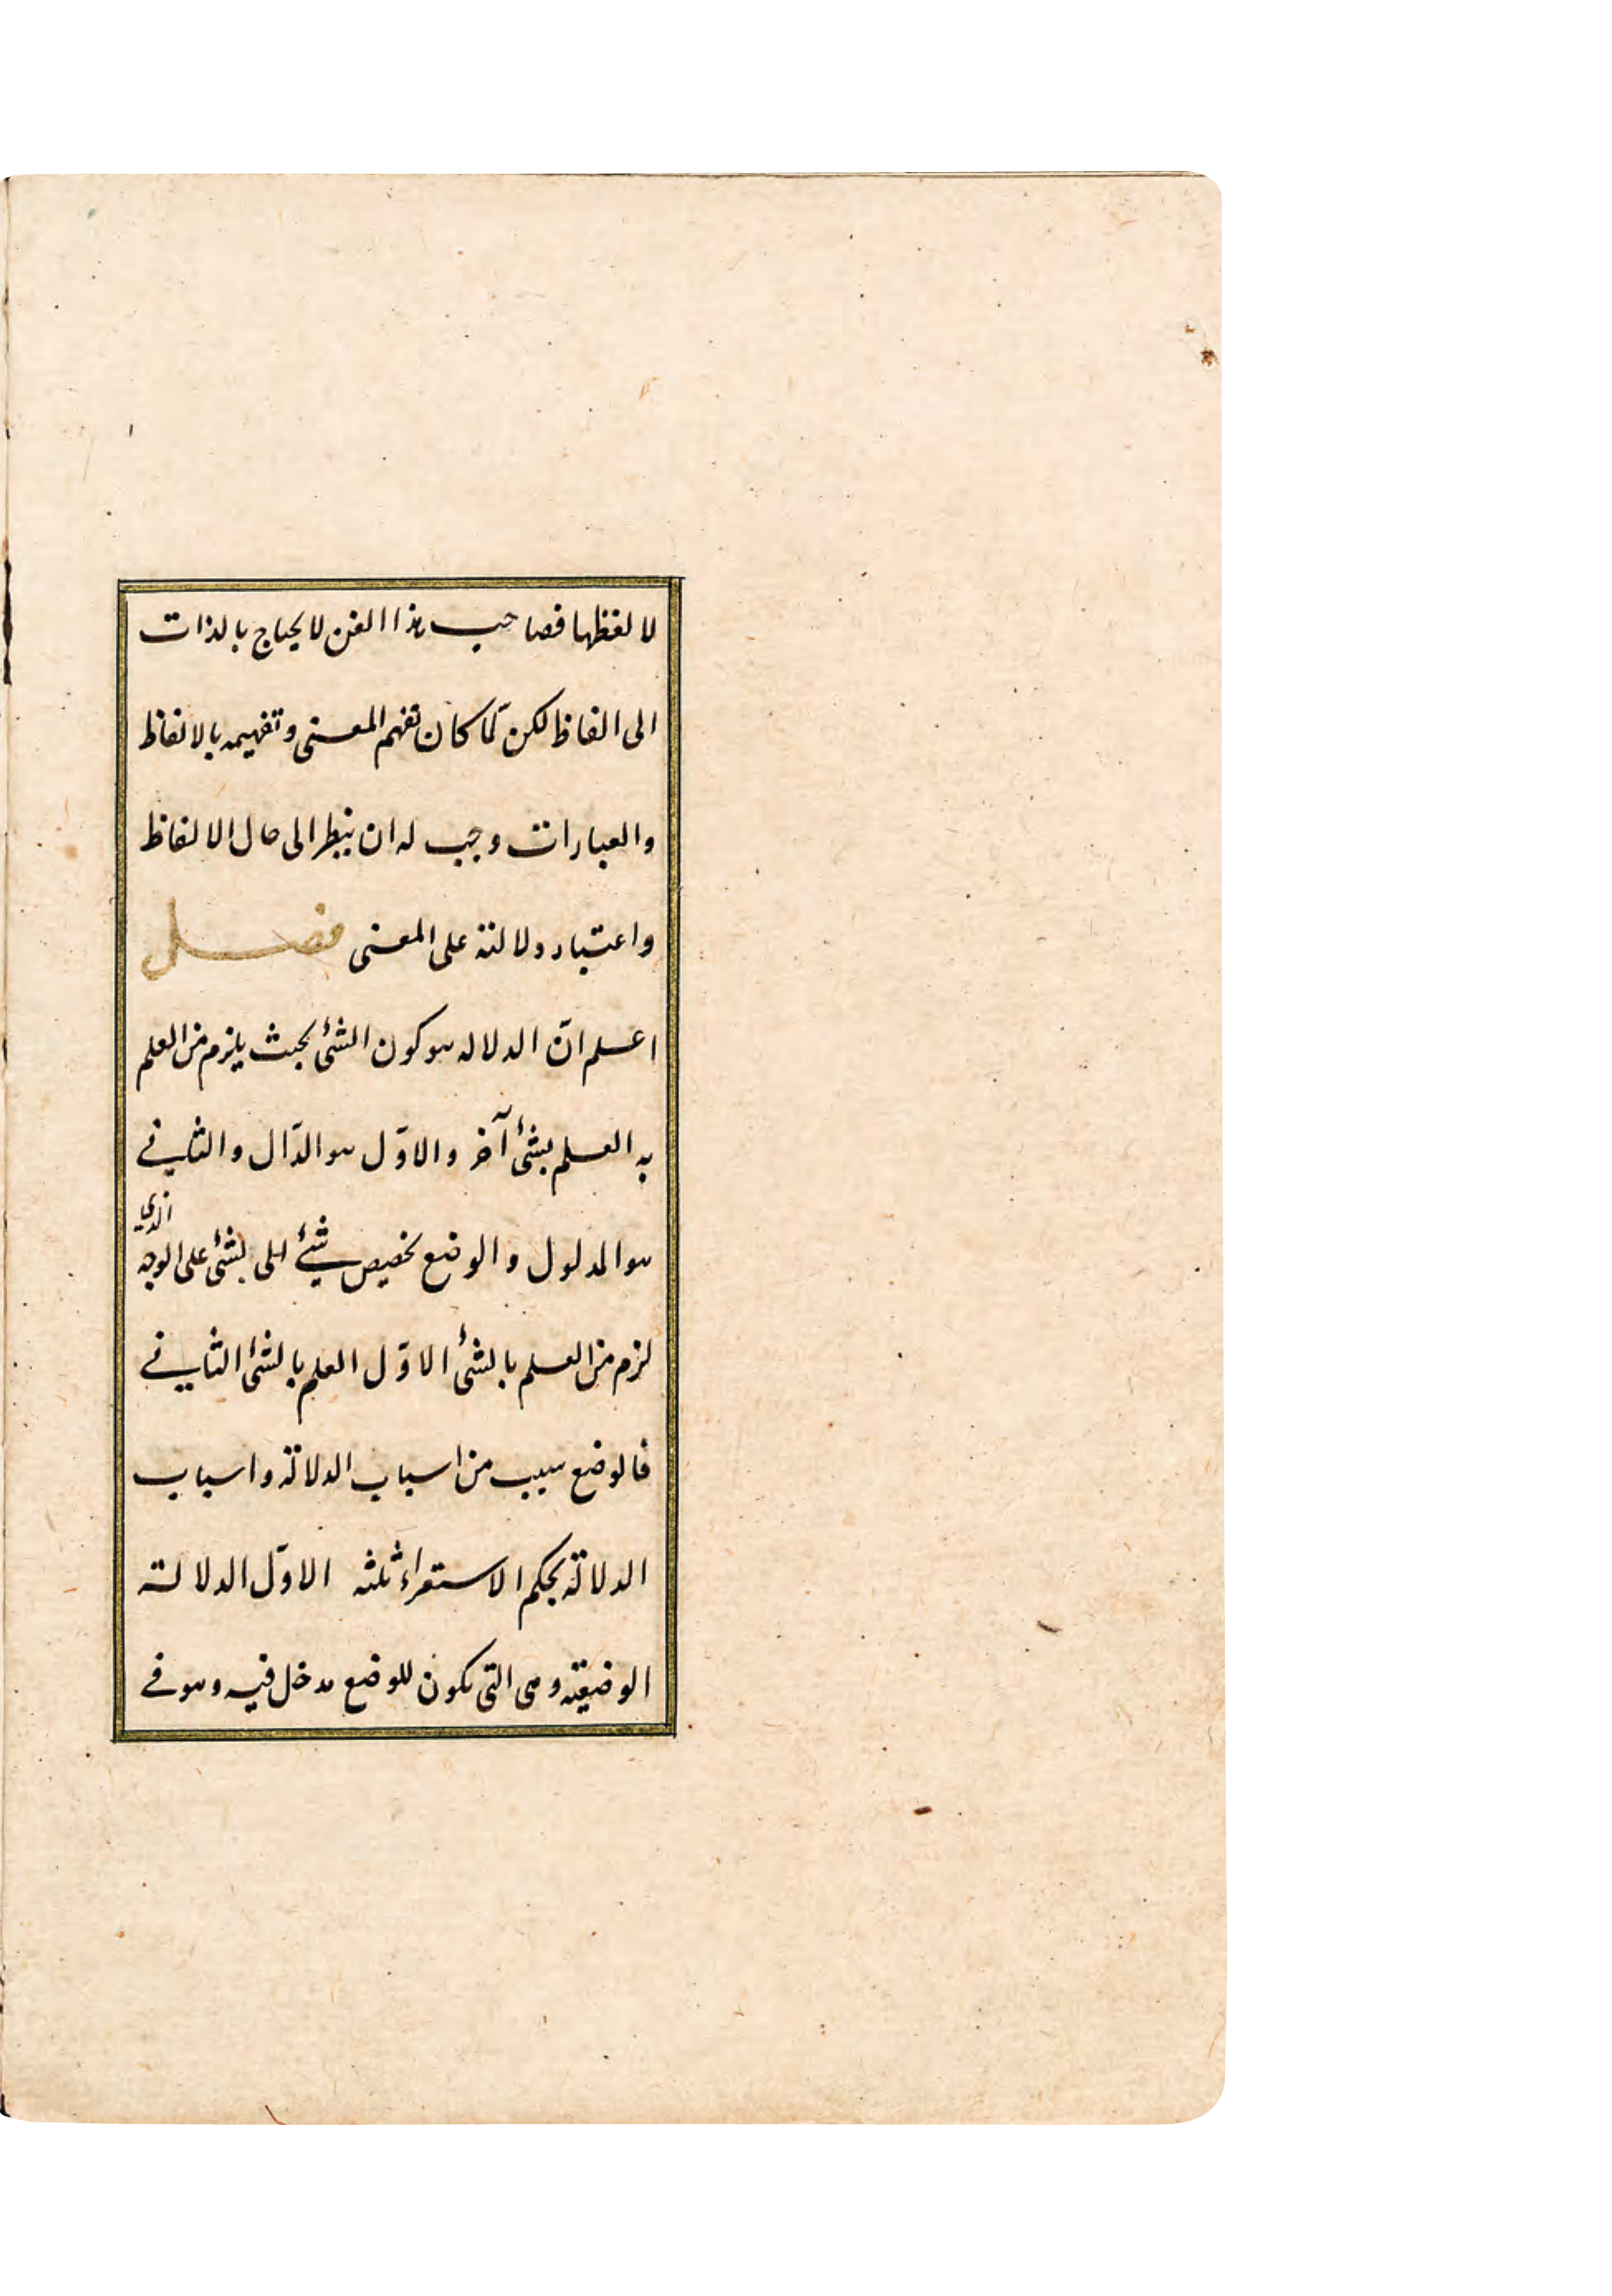 لا لفظها فصاحب هذا الفن لا يحتاج بالذات
الى الفاظ لكن لمّا كان تفهم المعنى وتفهيمه بالالفاظ
والعبارات وجب له ان ينظر الى حال الالفاظ
واعتبار دلالته على المعنى فصل
اعلم انّ الدلاله هو كون الشئ بحيث يلزم من العلم
به العلم بشئ آخر والاوّل هو الدّال والثانى
هو المدلول والوضع تخصيص شئ الى بشئ على الوجه الذى
لزم من العلم بالشئ الاوّل العلم بالشئ الثانى
فالوضع سبب من اسباب الدلالة واسباب
الدلالة بحكم الاستقراء ثلثه الاوّل الدلالة
الوضعية وهى التى يكون للوضع مدخل فيه وهو فى